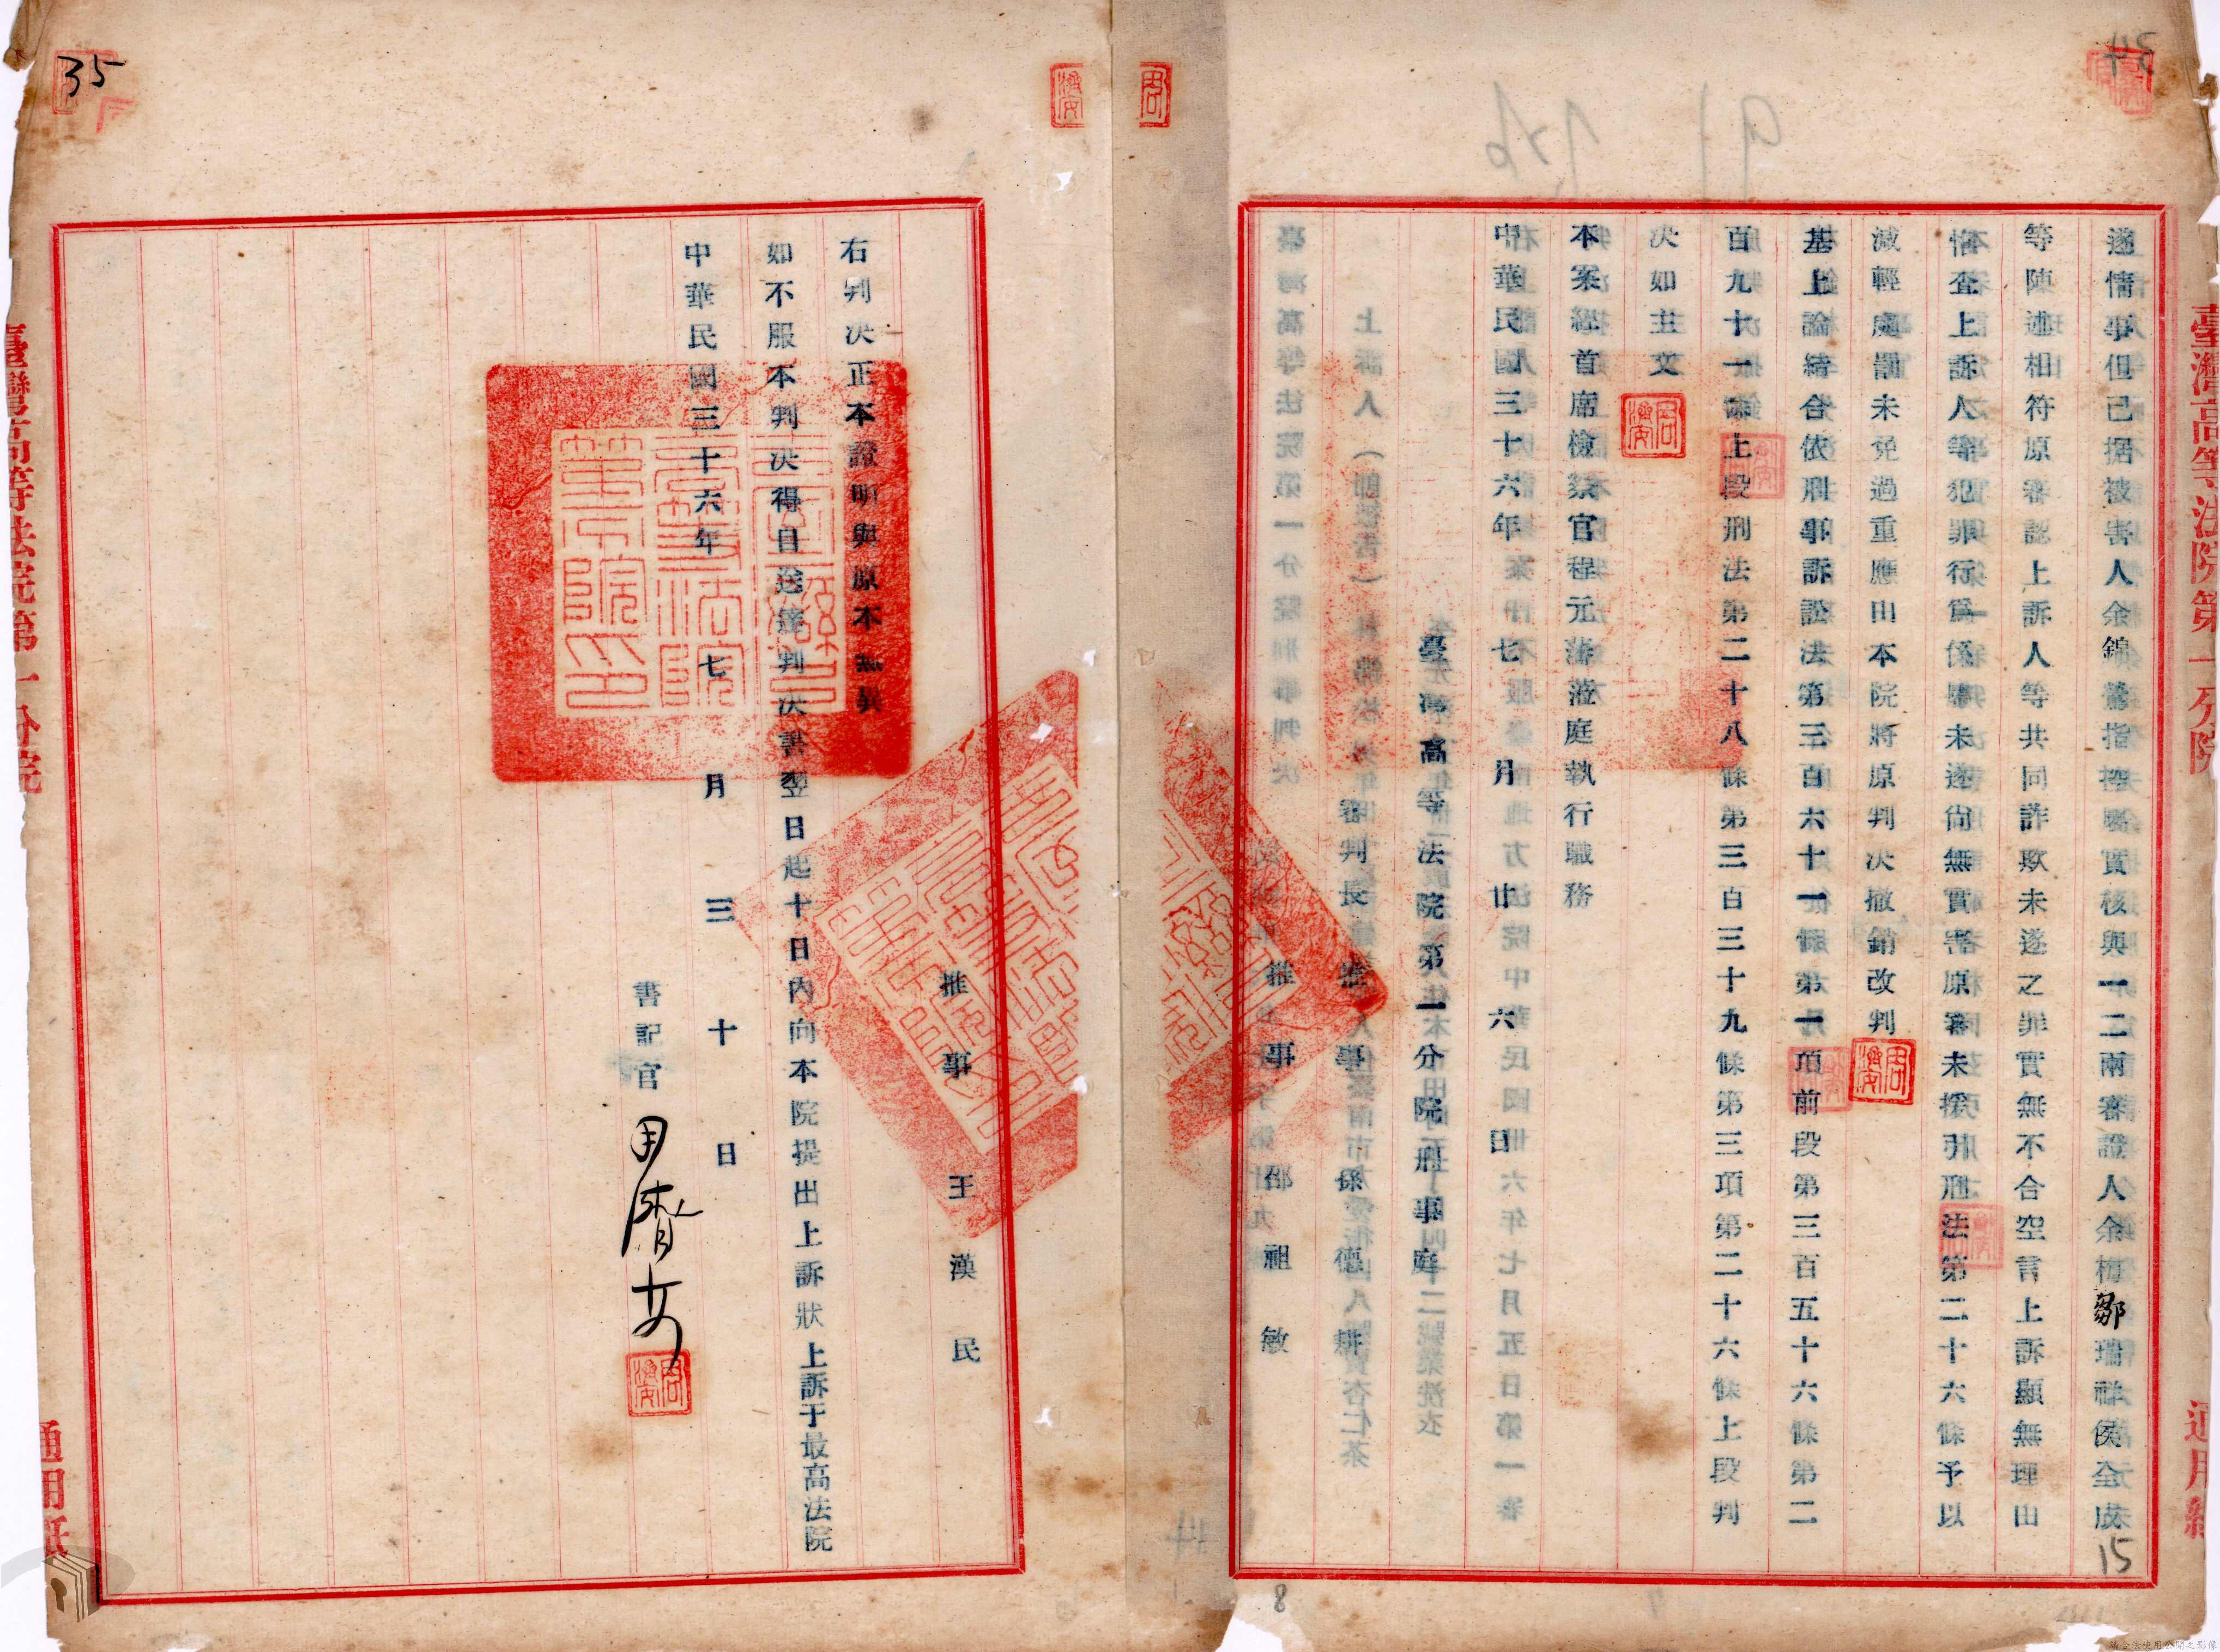 遂情事但已据被害人余錦鶯指控屬實核與一二兩審證人余梅鄒瑞祥侯全成
等陳述相符原審認上訴人等共同詐欺未遂之罪實無不合空言上訴顯無理由
惟査上訴人等犯罪行爲係屬未遂尙無實害原審未援引刑法第二十六條予以
減輕處罰未免過重應由本院將原判决撤銷改判
基上論結合依刑事訴訟法第三百六十一條第一項前段第三百五十六條第二
百九十一條上段刑法第二十八條第三百三十九條第三項第二十六條上段判
决如主文
本案經首席檢察官程元藩蒞庭執行職務
中華民國三十六年七月廿六日
臺灣高等法院第一分院刑事庭
審判長推事孫德耕
推事邵祖敏
推事王漢民
右判决正本證明與原本無異
如不服本判决得自送達判决書翌日起十日內向本院提出上訴狀上訴于最高法院
中華民國三十六年七月三十日
書記官周濟安
臺灣高等法院第一分院
通用紙
35
15
8